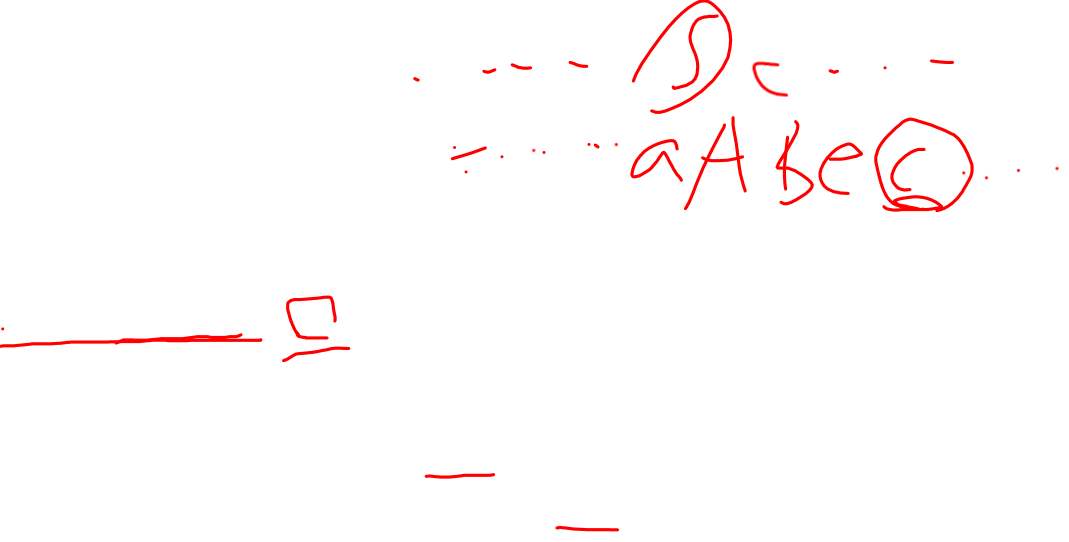 .---- S c -. -
-.... aABec....